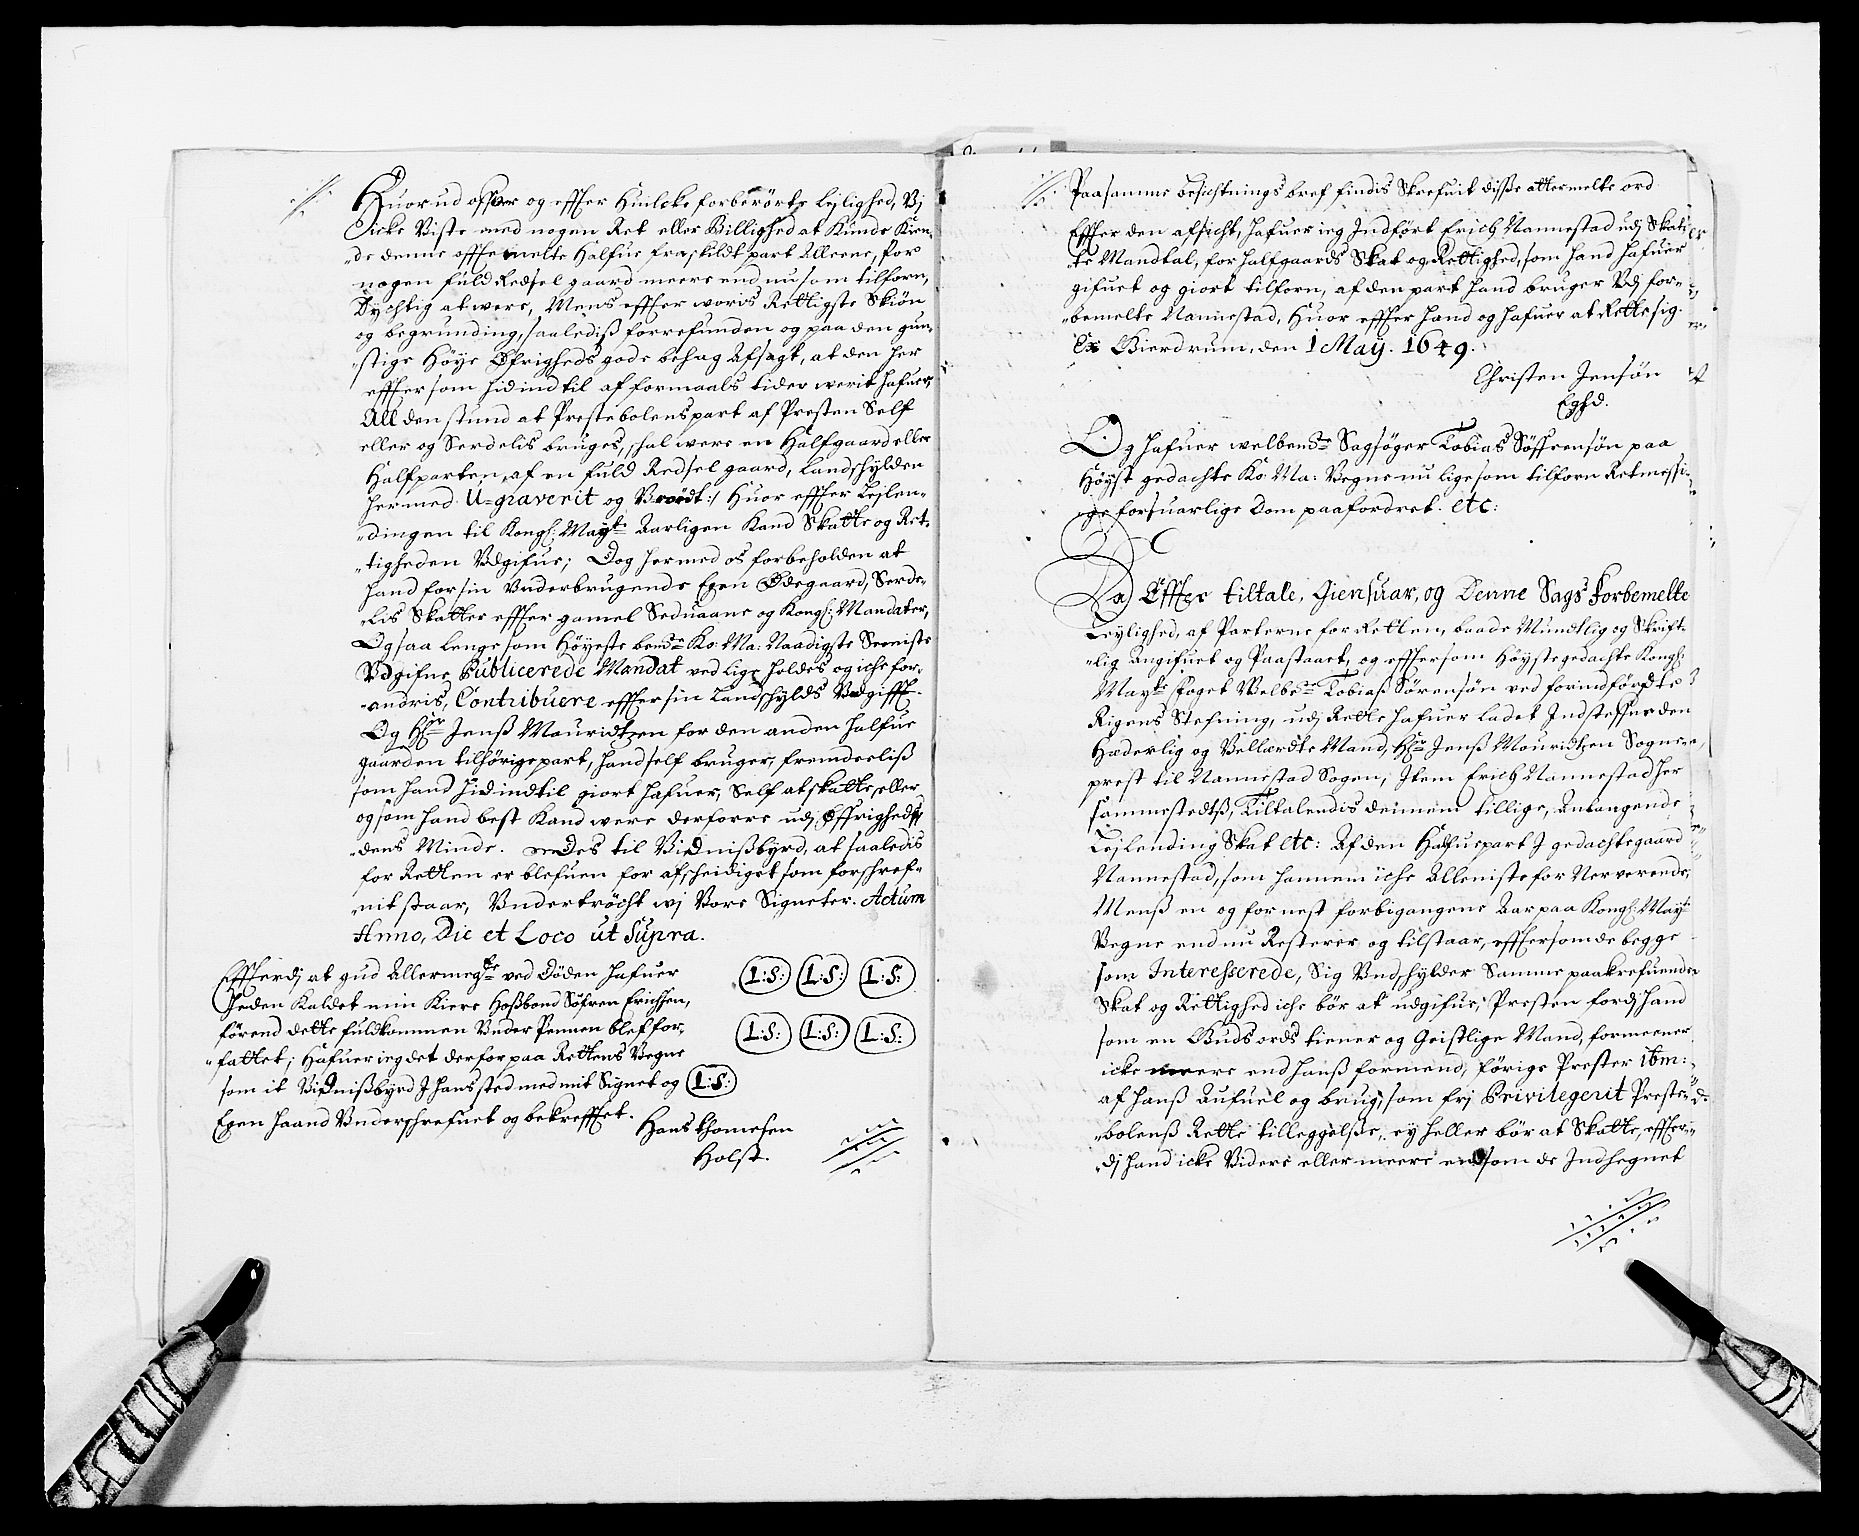 Huor ud offuer og effter Huilcke forberørte Lejlighed, Vj
icke Viste med nogen Ret eller Billighed at Kunde Kien-
"de denne offtemelte Halfue fraskildt part Alleene, for
nogen fuld Redsel gaard meere end nu som tilforn,
Dychtig at were, Mens effter woris Rettigste Skiøn
og begrunding, saaledisß forrefunden og paa den gun-
stige Høye Øfrigheds gode behag Afsagt, at den her
effter som hid indtil af formaals tider werit hafuer,
All den stund at Prestebolens part af Presten Self
eller og Serdelis bruges, skal were en Halfgaard eller
Halfparten af en fuld Redsel gaard, Landskylden
hermed U-graverit og Vrørdt :/ Huor effter Lejlen-
"dingen til Kongl: Mayts Aarligen Kand Skatte og Ret-
"tigheden Vdgifue; Dog hermed os forbeholden at
hand for sin Vnderbrugende Egen Ødegaard, Serde-
"lis Skatter effter gamel Seduaane og Kongl: Mandater,
Og saa lenge som Høyeste bemte Ko: Ma: Naadigste Seeniste
Vdgifne Publicerede Mandat ved lige holdes og iche for-
"andris, Contribuere effter sin Landskylds Vdgifft.
Og Hr Jensß Mouridtzen for den anden halfue
gaarden tilhørige part, hand self bruger, fremdeelisß
som hand hid indtil giort hafuer, Self at skatte, eller
og som hand best Kand were derforre udj Øffrighed-
"dens Minde. Des til Vidnisßbyrd, at saaledis
for Retten er blefuen for afskeidiget som forschref-
"nit staar, Vndertrøcht wj Vore Signeter. Actum
Anno, Die et Loco ut Supra.
Effterdj at gud Allermegte ved Døden hafuer
heden Kaldet min Kiere Hosßbond Søfren Erichsen,
førend dette fuldkommen Vnder Pennen blef for-
"fattet; Hafuer ieg det derfor paa Rettens Vegne
som it Vidnisßbyrd J hans sted med mit Signet og L:S:
Egen haand Vnderschrefuet og bekrefftet.
L:S: L:S: L:S:
L:S: L:S: L:S:
Hans thomesen
Holst.
Paa samme besichtnings bref findis Skrefuit disße attermelte ord
Effter den afsicht, hafuer ieg Indført Erich Nannestad udj Skatt-
te Mandtal, for halfgaards Skat og Rettighed, som hand hafuer
gifuet og giort tilforn, af den part hand bruger Vdj for-
"bemelte Nannestad, Huor effter hand og hafuer at Rette sig.
Ex Bierdrum, den 1 May. 1649.
Christen Jensøn
Eghd.
Og hafuer welbemte Sagsøger Tobias Søffrensøn paa
Høyst gedachte Ko: Ma: Vegne nu lige som tilforn Retmessi-
"ge forsuarlige Dom paafordret. etc:
Da Effter tiltale, Giensuar, og Denne Sags Forbemelte
Leylighed, af Parterne for Retten, baade Mundtlig og Skrift-
"lig Angifuet og Paastaaet, og effter som Høystegedachte Kongl:
Mayts foget Welbte Tobiasß Sørensøn ved forindførdte
Rigens Stefning, udj Rette hafuer ladet Indsteffne den
Hæderlig og Vellærdte Mand, Hr Jensß Mouridtzen Sogne-
prest til Nannestad Sogen, Item Erich Nannestad her
sammestedtsß, Tiltalendis dennem tillige, Anlangende
Lejlending Skat etc: Af den Halfuepart J gedachte gaard
Nannestad, som hannem iche Alleniste for Nerverende,
Mensß en og for nest forbigangene Aar paa Kongl: Mayts
Vegne end nu Resterer og tilstaar, effter som de begge
som Interesserede, Sig Vndskylder Samme paakrefuende
Skat og Rettighed iche bør at udgifue, Presten fordj hand
som en Guds ords tiener og Geistlige Mand, formeener
icke meere end hansß formend, førige Prester ibm:
af hansß Aufuel og brug, som frj Privilegerit Preste-
"bolensß Rette tilleggelsße, ey heller bør at Skatte, effter-
"dj hand icke Videre eller meere end som de Indhegnet